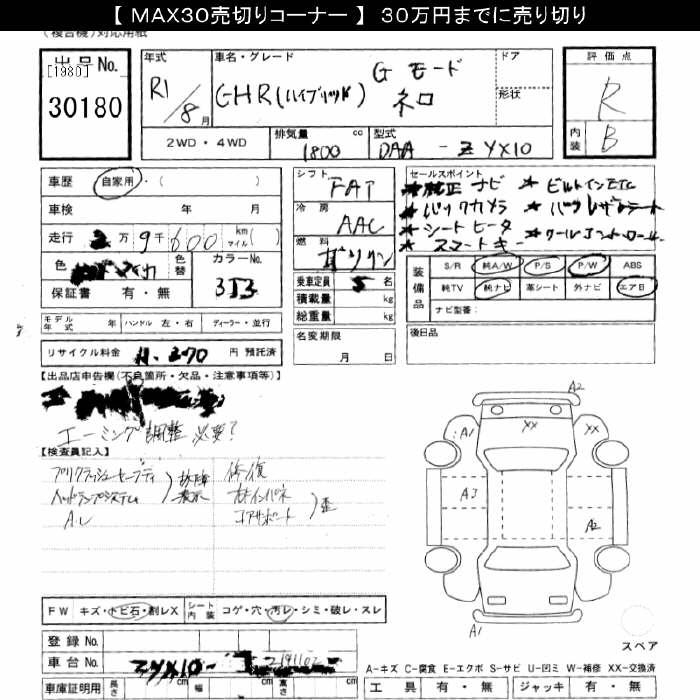 【 MAX30売切りコーナー 】 30万円までに売り切り
(複合機)対応用紙
出品No.
[1980]
30180
年式
R1/8月
車名・グレード
CHR(ハイブリッド) Gモード ネロ
ドア
形状
評価点
R
内装
B
2WD・4WD
排気量
1800
cc
型式
DAA - ZYX10
車歴
自家用・( )
車検
年 月
走行
2万9千600
km
マイル( )
色
色替
カラーNo.
3J3
保証書 有・無
シフト
FAT
冷房
AAC
燃料
ガソリン
乗車定員 5 名
積載量 kg
総重量 kg
セールスポイント
★ 純正ナビ ★ ビルトインETC
★ バックカメラ
★ シートヒータ
★ スマートキー
装備品
S/R 純A/W P/S P/W ABS
純TV 純ナビ 革シート 外ナビ エアB
ナビ型番:
モデル年式 年 ハンドル 左・右 ディーラー・並行
名変期限
月 日
後日品
リサイクル料金 11.270 円 預託済
【出品店申告欄(不良箇所・欠品・注意事項等)】
エーミング調整 必要?
【検査員記入】
プリクラッシュセーフティ
ヘッドランプシステム
故障表示
修復
コアサポート
歪
A2
A1
XX
XX
A3
A2
A1
FW キズ・トビ石・割レX
シート内装 コゲ・穴・汚レ・シミ・破レ・スレ
登録 No.
車台 No. ZYX10-
スペア
A-キズ C-腐食 E-エクボ S-サビ U-凹ミ W-補修 XX-交換済
車庫証明用 長さ cm 幅 cm 高さ cm
工具 有・無 ジャッキ 有・無